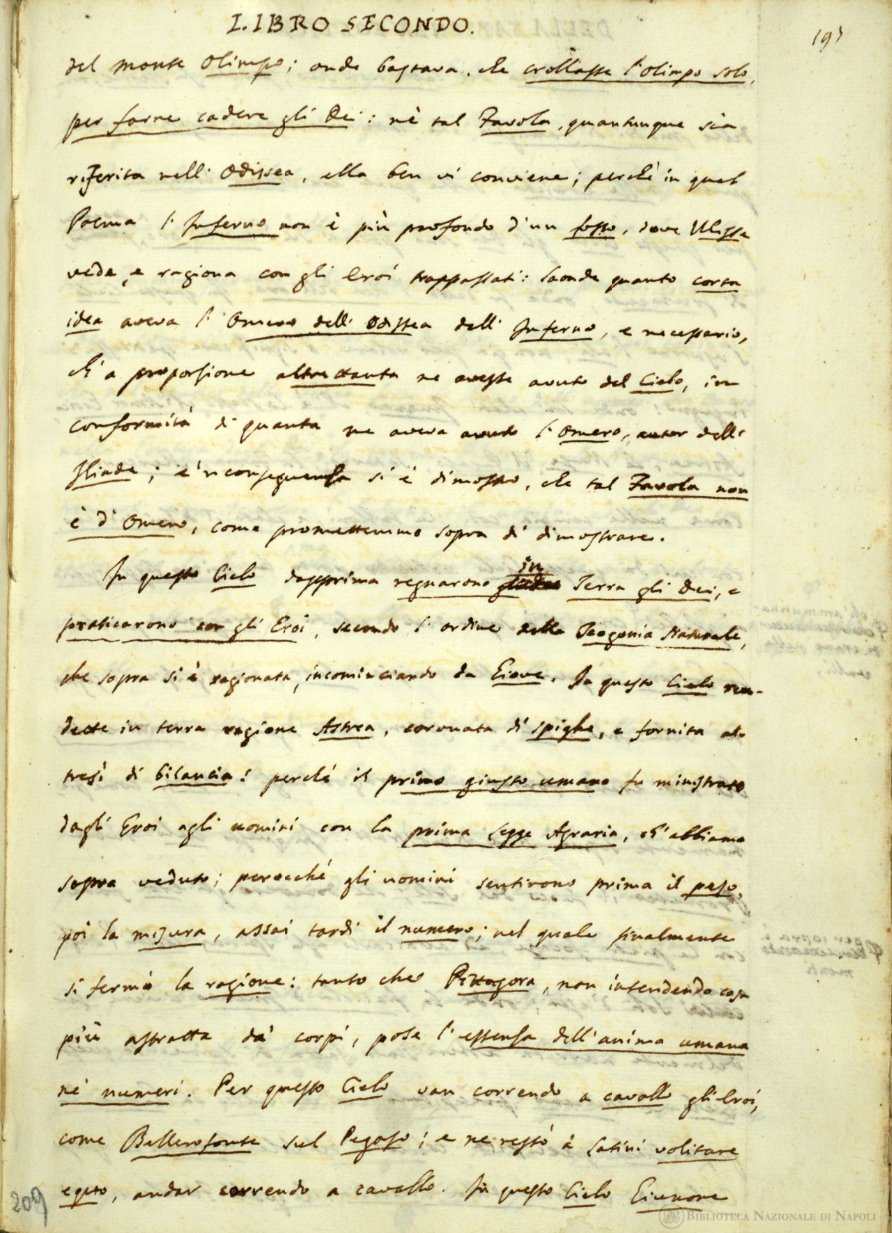 LIBRO SECONDO.
195
del monte Olimpo; onde bastava, che crollasse l'Olimpo solo,
per farne cadere gli Dei: nè tal Favola, quantunque sia
riferita nell'Odissea, ella ben vi conviene; perchè in quel
Poema l'Inferno non è più profondo d'un fosso, dove Ulisse
vede, e ragiona con gli Eroi trappassati: laonde quanto corta
idea aveva l'Omero dell'Odissea dell'Inferno, è necessario,
ch'a proporzione altrettanta ne avesse avuto del Cielo, in
conformità di quanta ne aveva avuto l'Omero, autor dell'
Iliade; e 'n conseguenza si è dimostro, che tal Favola non
è d'Omero, come promettemmo sopra di dimostrare.
In questo Cielo dapprima regnarono in Terra gli Dei, e
praticarono con gli Eroi, secondo l'ordine della Teogonia Naturale,
che sopra si è ragionata, incominciando da Giove. In questo Cielo ren-
dette in terra ragione Astrea, coronata di spighe, e fornita al-
tresì di bilancia: perchè il primo giusto umano fu ministrato
dagli Eroi agli uomini con la prima Legge Agraria, ch'abbiamo
sopra veduto; perocchè gli uomini sentirono prima il peso,
poi la misura, assai tardi il numero; nel quale finalmente
si fermò la ragione: tanto che Pittagora, non intendendo cosa
più astratta da' corpi, pose l'essenza dell'anima umana
ne' numeri. Per questo Cielo van correndo a cavallo gli Eroi,
come Bellerofonte sul Pegaso; e ne restò a' Latini volitare
equo, andar correndo a cavallo. In questo Cielo Giunone
209
BIBLIOTECA NAZIONALE DI NAPOLI